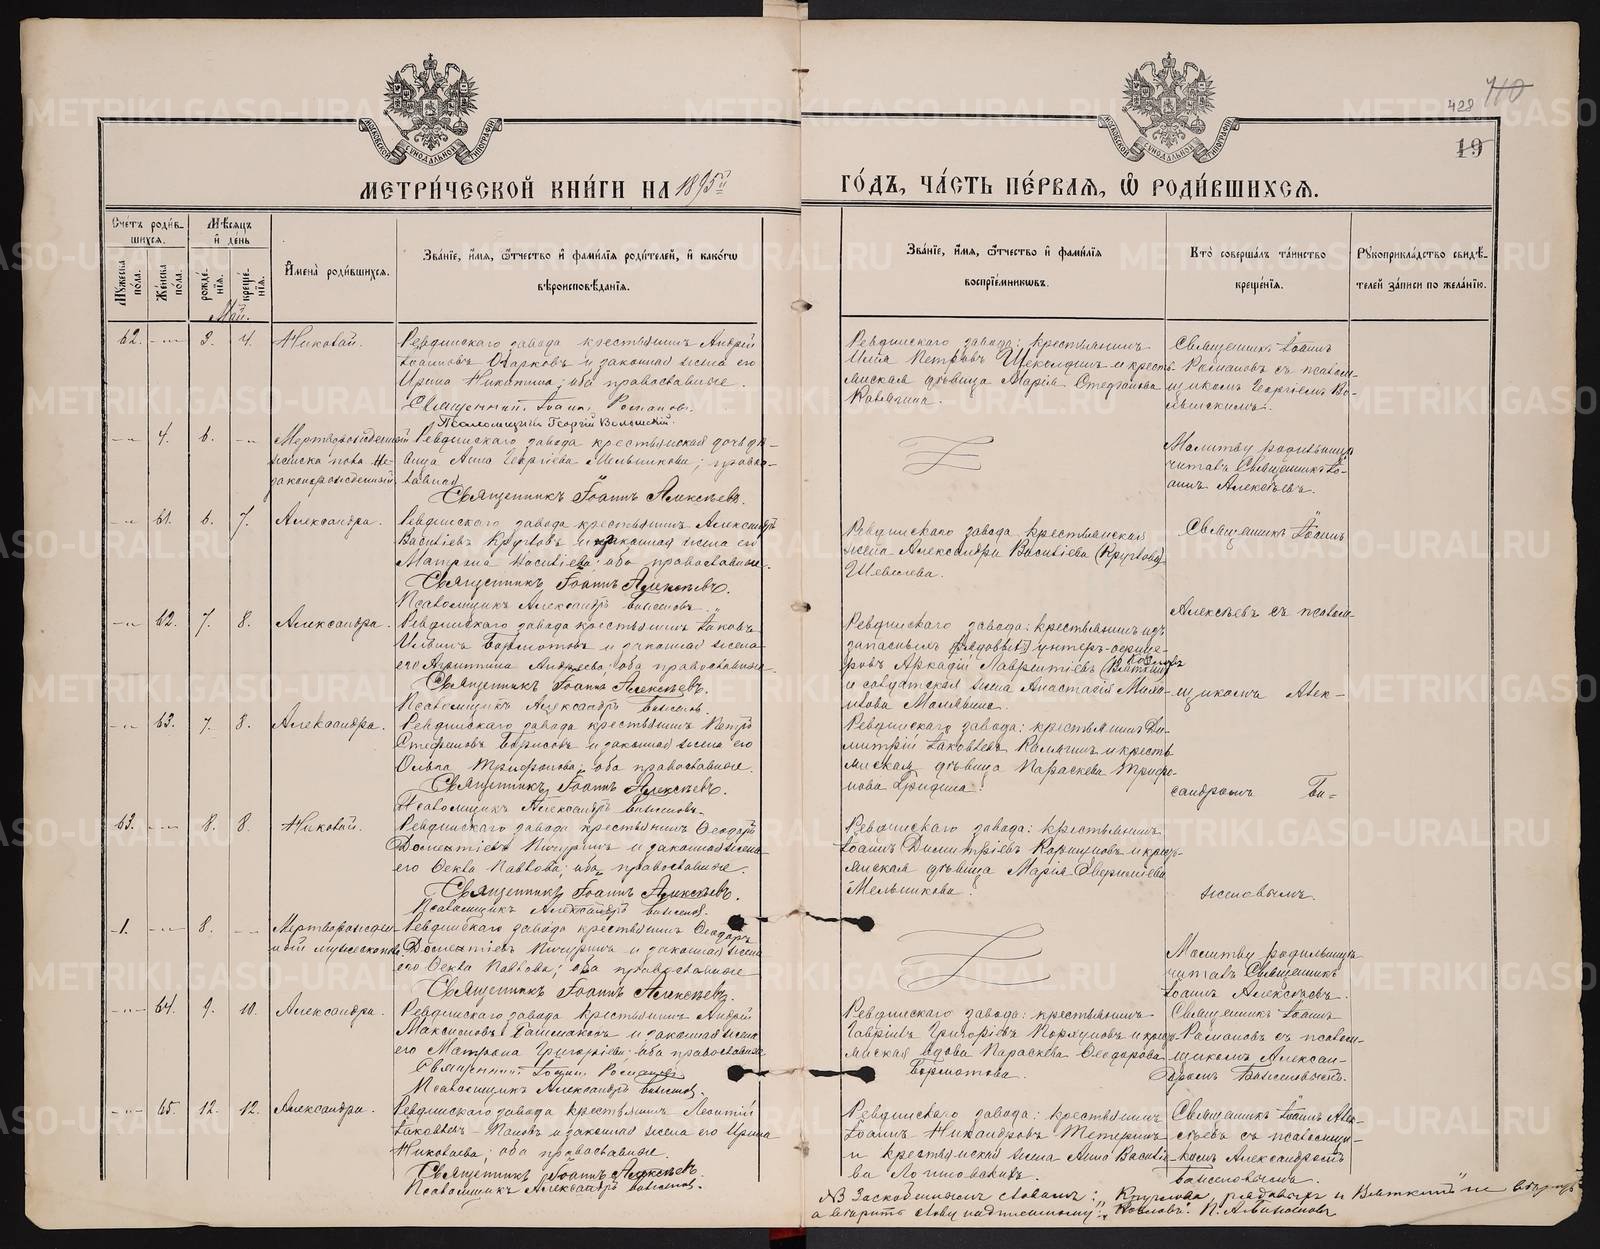 428 710
19
МОСКОВСКОЙ СѴНОДАЛЬНОЙ ТИПОГРАФІИ
МОСКОВСКОЙ СѴНОДАЛЬНОЙ ТИПОГРАФІИ
МЕТРИ́ЧЕСКОЙ КНИ́ГИ НА 1895й
ГО́ДЪ, ЧА́СТЬ ПЕ́РВАЯ, Ѡ҆ РОДИ́ВШИХСЯ.
Сче́тъ роди́в-
шихся.
Мꙋ́жеска по́ла.
Же́нска по́ла.
Мѣ́сяцъ
и҆ де́нь
рожде́-
нїя.
креще́-
нїя.
Май.
И҆мена̀ роди́вшихся.
Зва́нїе, и҆́мя, ѻ҆́тчество и҆ фами́лїя роди́телей, и҆ како́гѡ
вѣроисповѣ́данїя.
Зва́нїе, и҆́мя, ѻ҆́тчество и҆ фами́лїя
воспрїе́мникѡвъ.
Кто̀ соверша́лъ та́инство
креще́нїя.
Рꙋкоприкла́дство свидѣ́-
телей за́писи по жела́нїю.
62. 3. 4. Николай.
Ревдинскаго завода крестьянинъ Андрей
Іоанновъ и законная жена его
Ирина Никитина; оба православные.
Священникъ Іоаннъ Романовъ.
Псаломщикъ Георгій Волынскій.
Ревдинскаго завода: крестьянинъ
Илія Петровъ Щеколдинъ и кресть-
янская дѣвица Марія Стефанова
Калягина.
Священникъ Іоаннъ
Романовъ съ псалом-
щикомъ Георгіемъ Во-
лынскимъ.
4. 6. Мертворожденный
женска пола. Не-
законнорожденный
Ревдинскаго завода крестьянская дочь дѣ-
вица Анна Георгіева Мельникова; право-
славная.
Священникъ Іоаннъ Алексѣевъ.
Молитву родильницѣ
читалъ Священникъ Іо-
аннъ Алексѣевъ.
61. 6. 7. Александра.
Ревдинскаго завода крестьянинъ Александръ
Василіевъ Кругловъ и законная жена его
Матрона Василіева; оба православные.
Священникъ Іоаннъ Алексѣевъ.
Псаломщикъ Александръ
Ревдинскаго завода крестьянская
жена Александра Василіева (Круглова)
Шевелева.
Священникъ Іоаннъ
62. 7. 8. Александра.
Ревдинскаго завода крестьянинъ Іаковъ
Бормотовъ и законная жена
его Андреева; оба православные.
Священникъ Іоаннъ Алексѣевъ.
Псаломщикъ Александръ
Ревдинскаго завода: крестьянинъ изъ
запасныхъ (рядовыхъ) унтеръ-офице-
ровъ Аркадій Лаврентіевъ (Вяткинъ) Козловъ
и солдатская жена Анастасія
Алексѣевъ съ псалом-
щикомъ Алек-
63. 7. 8. Александра.
Ревдинскаго завода крестьянинъ Петръ
Стефановъ Борисовъ и законная жена его
Ольга Трифонова; оба православные.
Священникъ Іоаннъ Алексѣевъ.
Псаломщикъ Александръ
Ревдинскаго завода: крестьянинъ Ди-
митрій Іаковлевъ Калягинъ и кресть-
янская дѣвица Параскева Трифо-
нова
сандромъ
63. 8. 8. Николай.
Ревдинскаго завода крестьянинъ Ѳеодоръ
Дометіевъ Пичугинъ и законная жена
его Ѳекла Павлова; оба православные.
Священникъ Іоаннъ Алексѣевъ.
Псаломщикъ Александръ
Ревдинскаго завода: крестьянинъ
Іоаннъ Димитріевъ и кресть-
янская дѣвица Марія
Мельникова.
1. 8. Мертворожден-
ный мужеска пола.
Ревдинскаго завода крестьянинъ Ѳеодоръ
Дометіевъ Пичугинъ и законная жена
его Ѳекла Павлова; оба православные
Священникъ Іоаннъ Алексѣевъ.
Молитву родильницѣ
читалъ Священникъ
Іоаннъ Алексѣевъ.
64. 9. 10. Александра.
Ревдинскаго завода крестьянинъ Андрей
Максимовъ и законная жена
его Матрона Григоріева; оба православные
Священникъ Іоаннъ Романовъ
Псаломщикъ Александръ
Ревдинскаго завода: крестьянинъ
Гавріилъ Григоріевъ и кресть-
янская вдова Параскева Ѳеодорова
Бормотова.
Священникъ Іоаннъ
Романовъ съ псалом-
щикомъ Алексан-
дромъ
65. 12. 12. Александра.
Ревдинскаго завода крестьянинъ Леонтій
Іаковлевъ и законная жена его Ирина
Николаева; оба православные.
Священникъ Іоаннъ Алексѣевъ.
Псаломщикъ Александръ
Ревдинскаго завода: крестьянинъ
Іоаннъ Никандровъ Тетеринъ
и крестьянская жена Анна Василіе-
ва Логиновскихъ.
Священникъ Іоаннъ Але-
ксѣевъ съ псаломщи-
комъ Александромъ
NB Заскобленнымъ словамъ: „Круглова, рядовыхъ и Вяткинъ" не вѣрить
а вѣрить слову надписанному: „Козловъ."